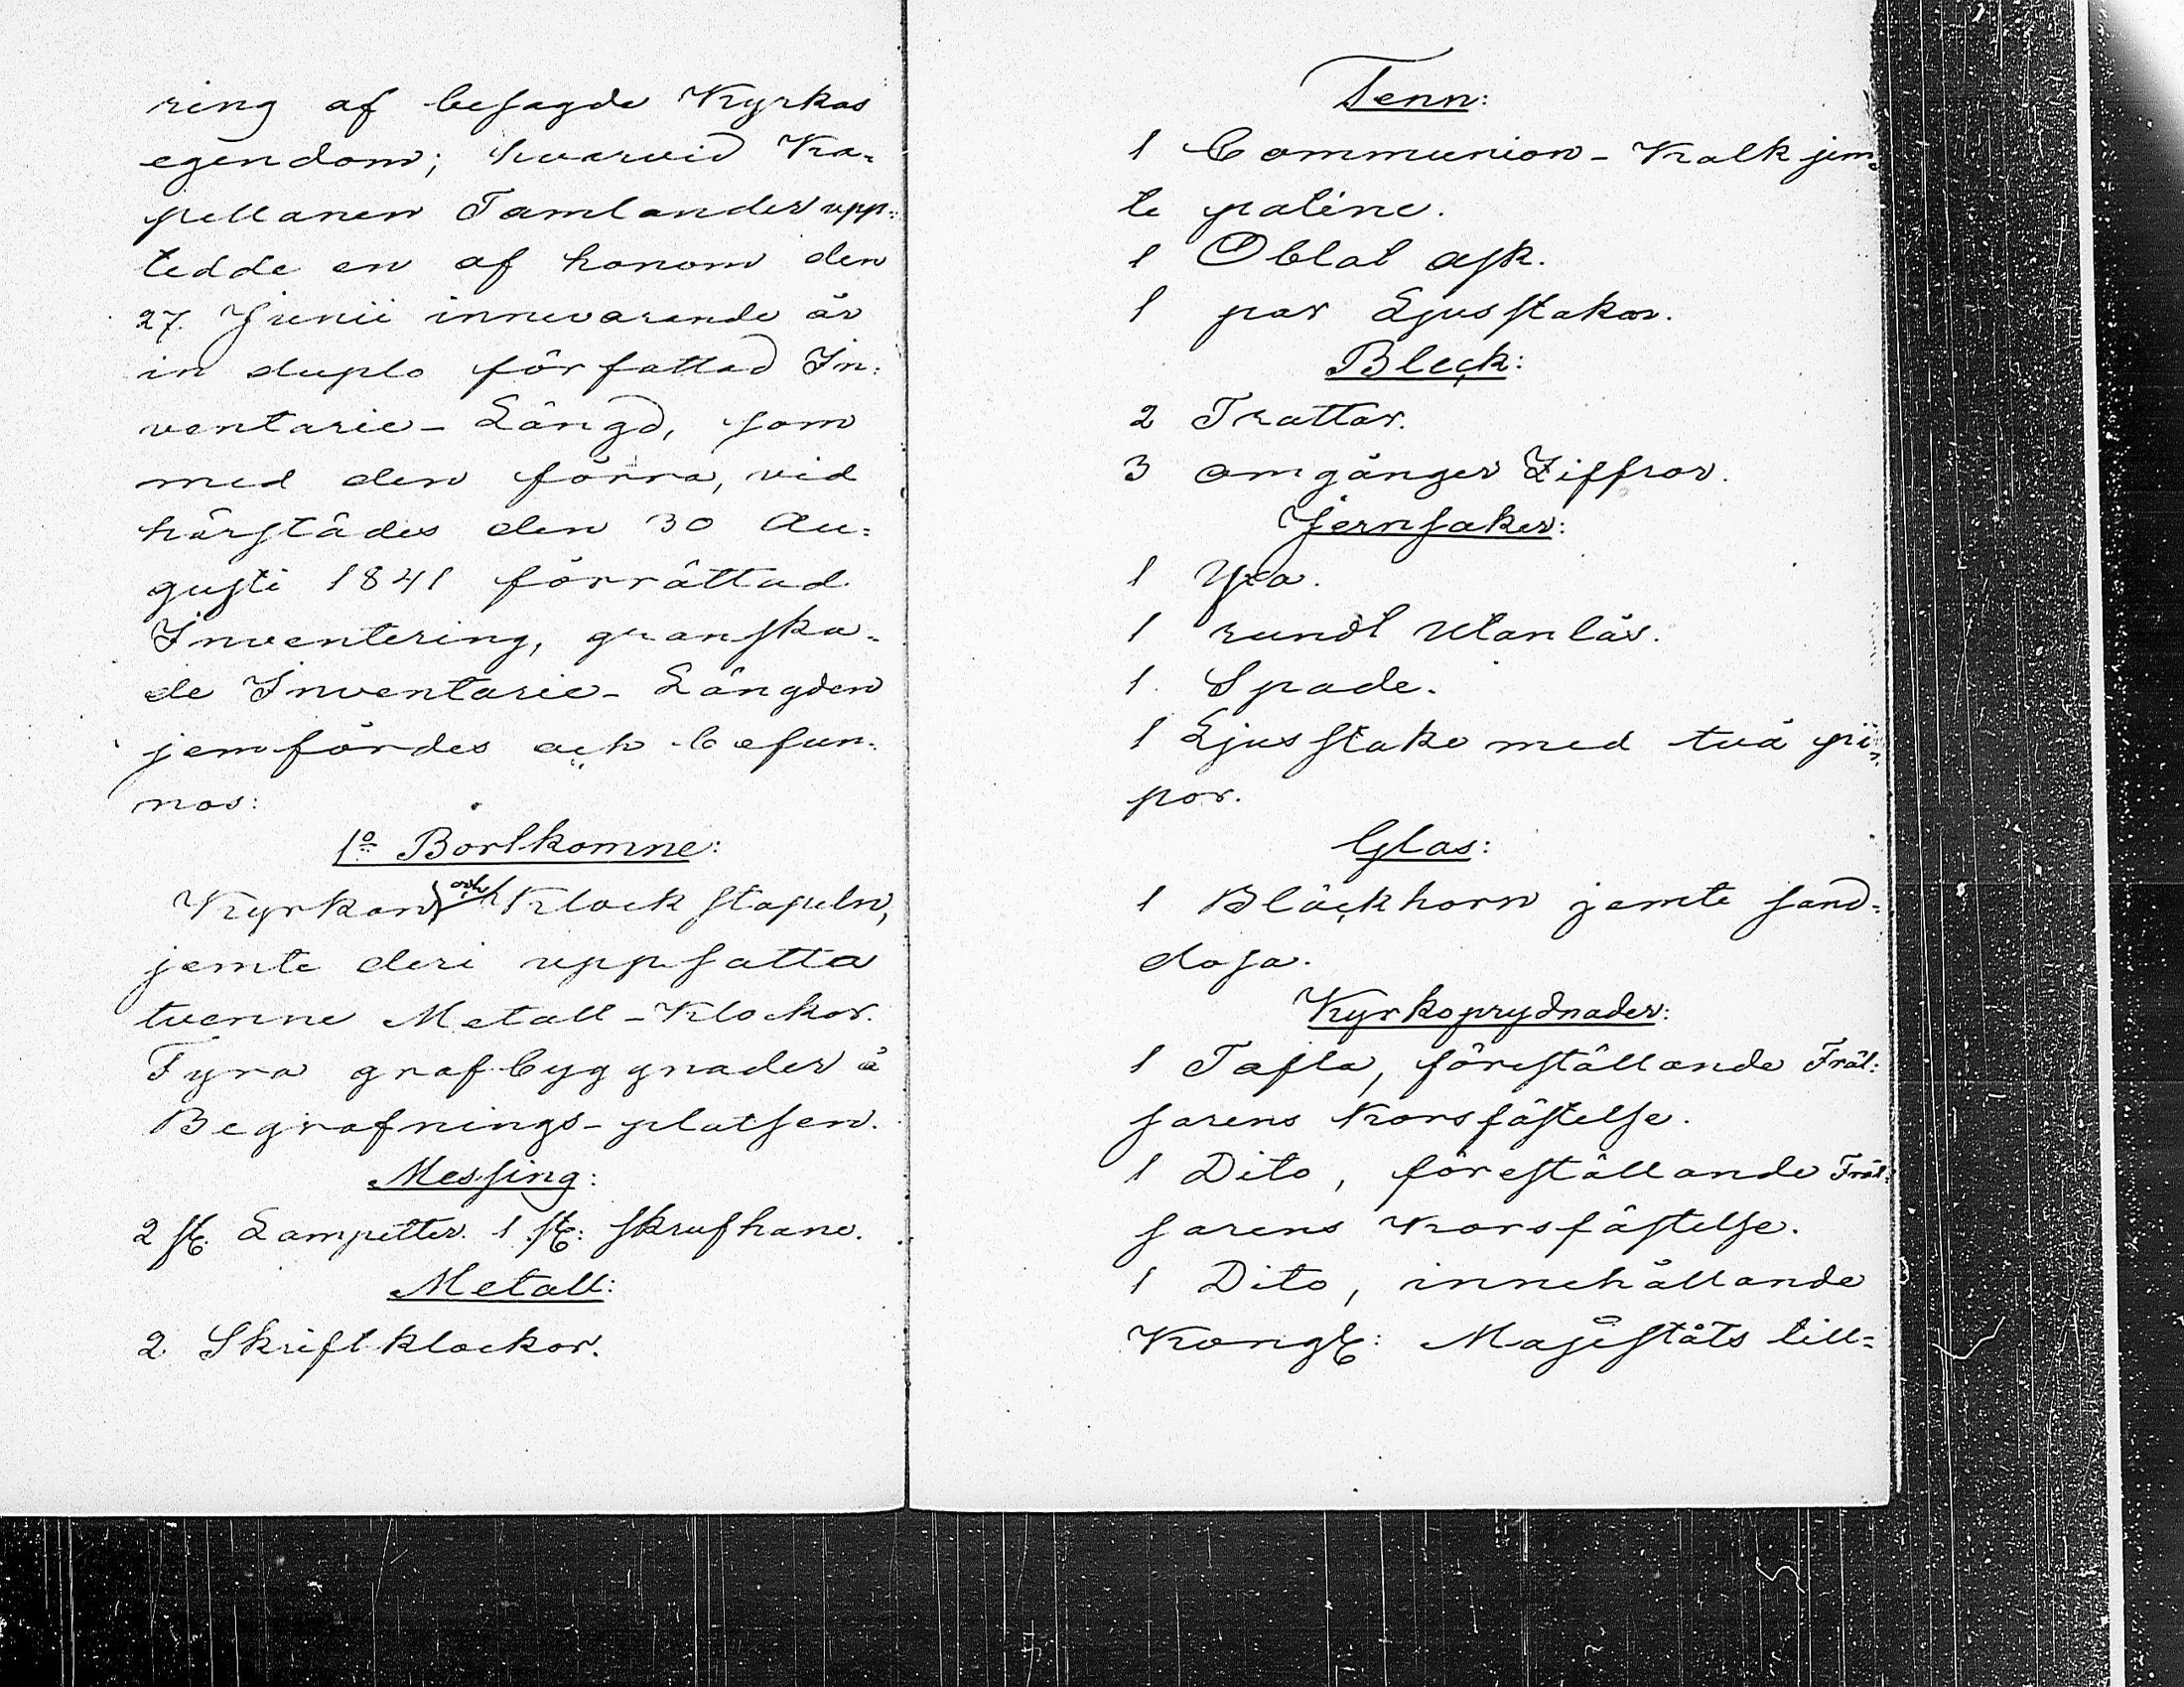 ring af besagde Kyrkas
egendom; hvarvid Ka-
pellanen Tamlander upp-
tedde en af honom den
27. Junii innevarande år
in duplo författad In-
ventarie-Längd, som
med den förra, vid
härstädes den 30 Au-
gusti 1841 förrättad
Inventering, granska-
de Inventarie-Längden
jemfördes och befun-
nos:
1o Bortkomne:
Kyrkan och Klockstapeln,
jemte deri uppsatta
tvenne Metall-Klockor.
Fyra grafbyggnader å
Begrafnings-platsen.
Messing:
2 st. Lampetter. 1 st: skrufhane.
Metall:
2 Skriftklockor.
Tenn:
1 Communion-Kalk jem-
te patène.
1 Oblat ask.
1 par Ljusstakar.
Bleck:
2 Trattar.
3 omgånger Ziffror.
Jernsaker:
1 Yxa.
1 rundt utanlås.
1 Spade.
1 Ljusstake med två pi-
por.
Glas:
1 Bläckhorn jemte sand-
dosa.
Kyrkoprydnader:
1 Tafla, föreställande Fräl-
sarens Korsfästelse.
1 Dito, föreställande Fräl-
sarens Korsfästelse.
1 Dito, innehållande
Kongl: Majestäts till-